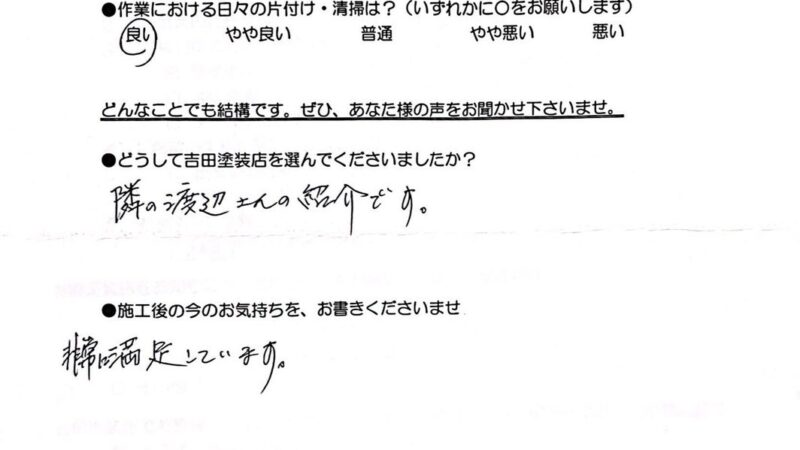 ●作業における日々の片付け・清掃は？（いずれかに〇をお願いします）
良い　やや良い　普通　やや悪い　悪い
どんなことでも結構です。ぜひ、あなた様の声をお聞かせ下さいませ。
●どうして吉田塗装店を選んでくださいましたか？
隣の渡辺さんの紹介です。
●施工後の今のお気持ちを、お書きくださいませ
非常に満足しています。